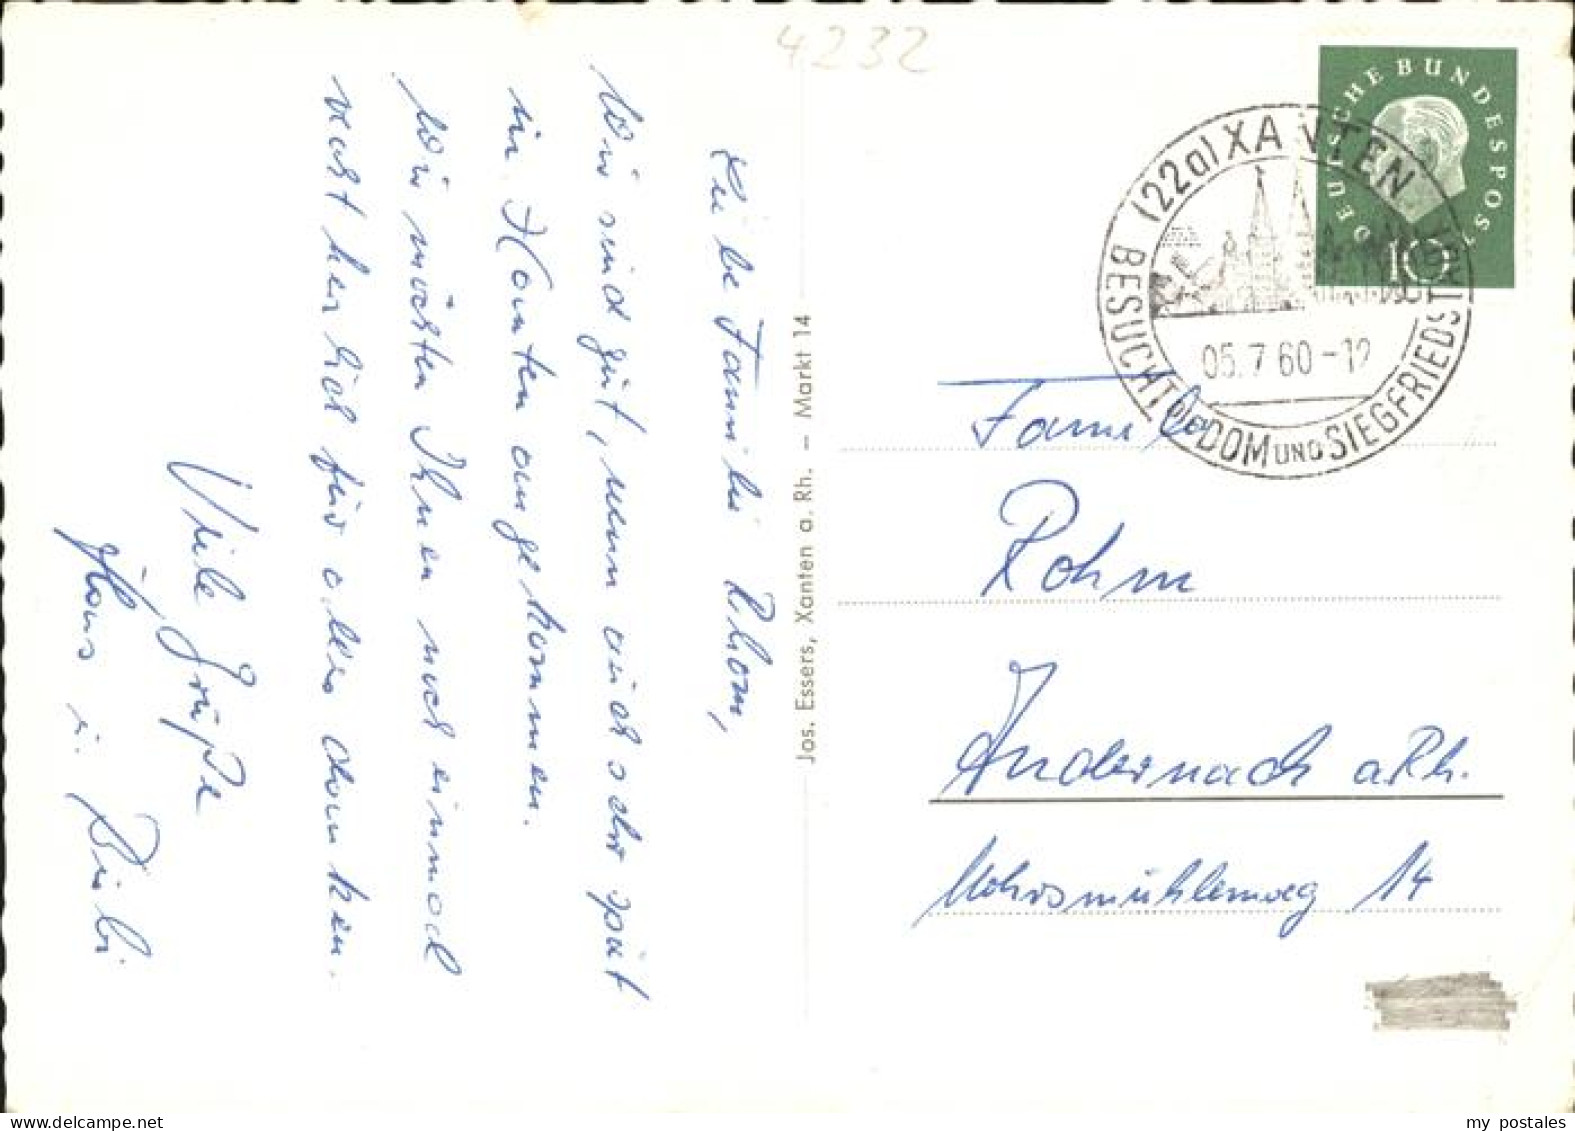 4232
Liebe Familie Rhom,
Wir sind gut, wenn auch sehr spät
in Xanten angekommen.
Wir möchten Ihnen noch einmal
recht herzlich für alles danken.
Viele Grüße
Hans u. Bärbi
Jos. Essers, Xanten a. Rh. — Markt 14
DEUTSCHE BUNDESPOST
10
(22a) XANTEN
05.7.60-12
BESUCHT DOM UND SIEGFRIEDSTADT
Familie
Rohm
Andernach a.Rh.
14
my postales